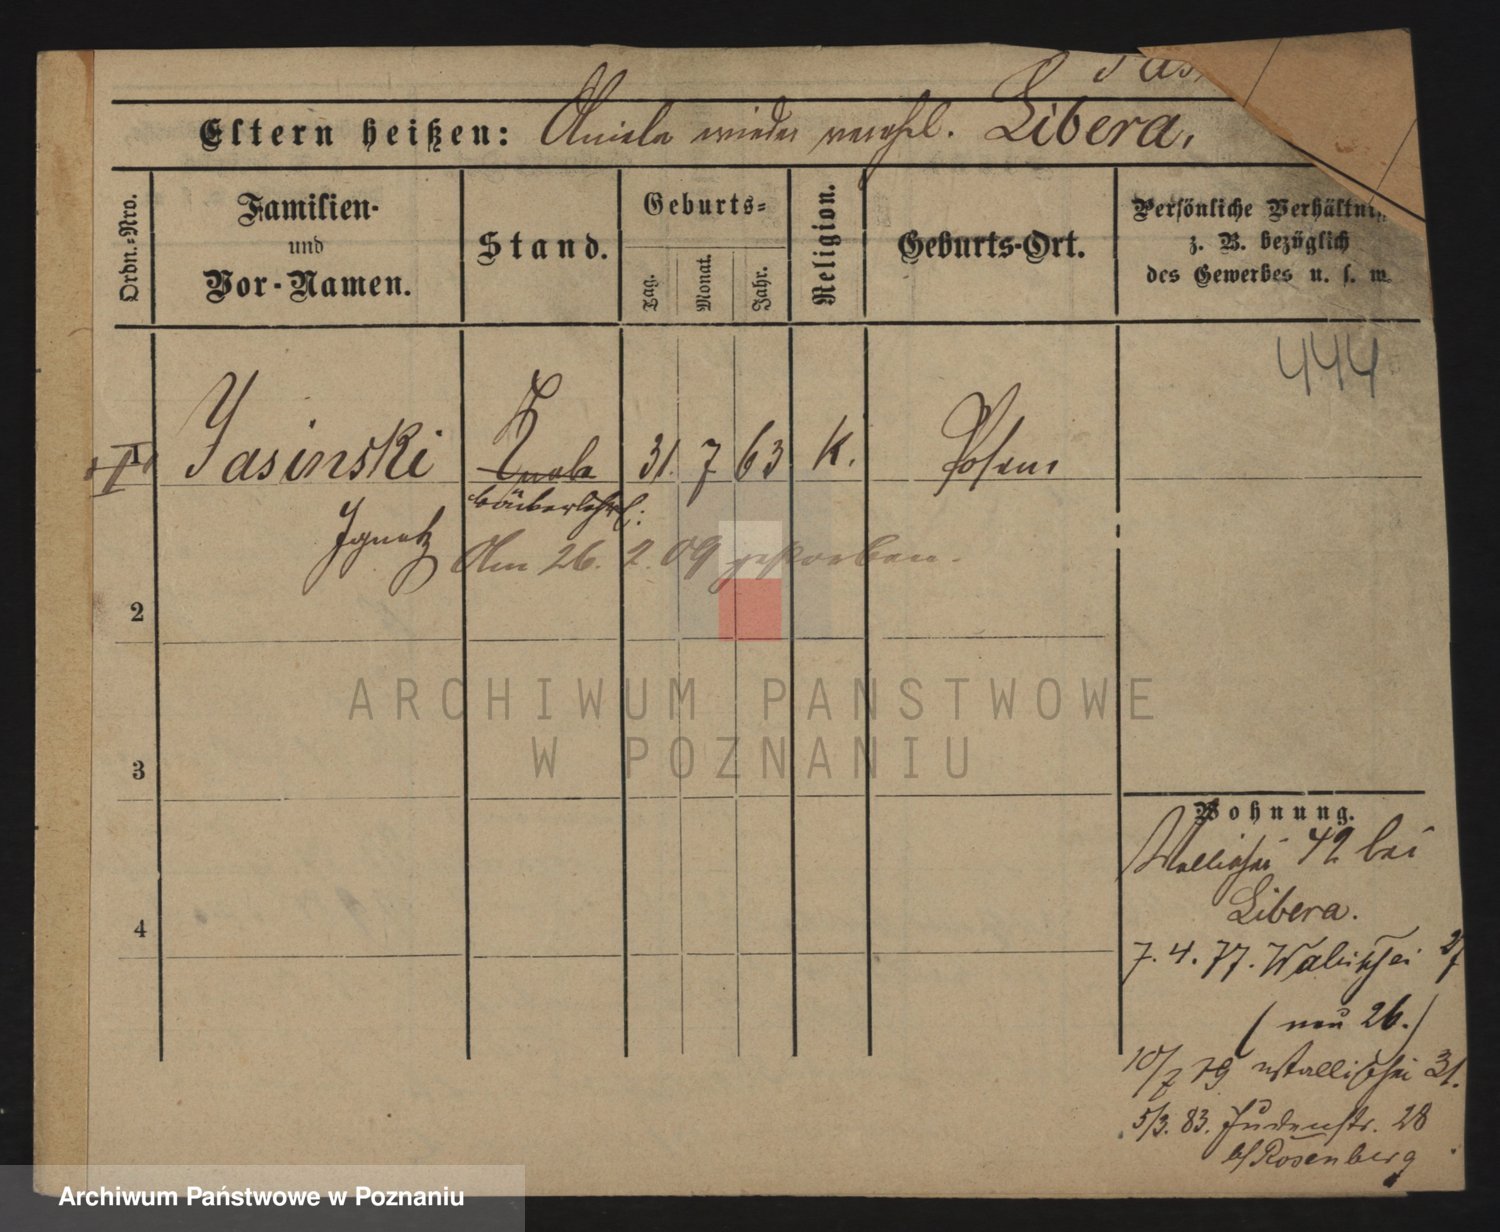 Eltern heißen: Aniela wieder verehel. Libera,
Ordn.-Nro.
Familien-
und
Vor-Namen.
Stand.
Geburts-
Tag.
Monat.
Jahr.
Religion.
Geburts-Ort.
Persönliche Verhältni
z. B. bezüglich
des Gewerbes u. s. w.
444
1
Jasinski
Knabe
31. 7 63
K.
Posen
Ignatz
Am 26. 2. 09 gestorben.
2
3
4
Wohnung.
Wallischei 42 bei
Libera.
7. 4. 77. Wallischei
(neu 26.)
10/7 79 Wallischei 31.
5/3. 83. Judenstr. 28
b/Rosenberg
ARCHIWUM PAŃSTWOWE
W POZNANIU
Archiwum Państwowe w Poznaniu